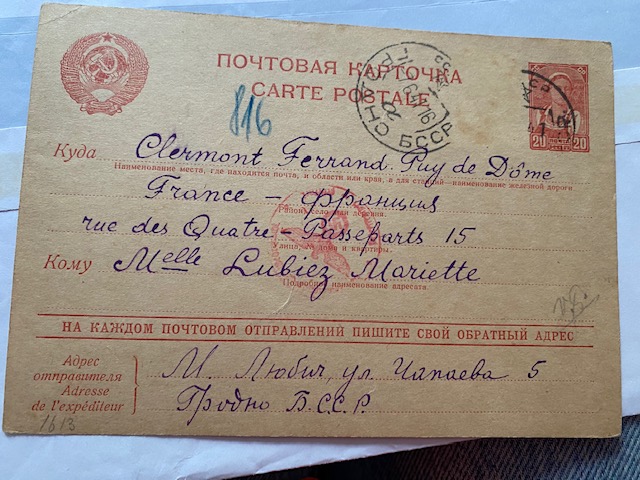 ПОЧТОВАЯ КАРТОЧКА
CARTE POSTALE
816
БССР
ПОЧТА
20 20
Куда Clermont Ferrand Puy de Dôme
Наименование места, где находится почта, и области или края, а для станций—наименование железной дороги
France — Франция
Район, село или деревня.
rue des Quatre — Passeports 15
Улица, № дома и квартиры.
Кому Melle Lubiez Mariette
Подробное наименование адресата.
НА КАЖДОМ ПОЧТОВОМ ОТПРАВЛЕНИИ ПИШИТЕ СВОЙ ОБРАТНЫЙ АДРЕС
Адрес
отправителя
Adresse
de l'expéditeur
М. Любич, ул. Чапаева 5
Гродно Б.С.С.Р.
1613